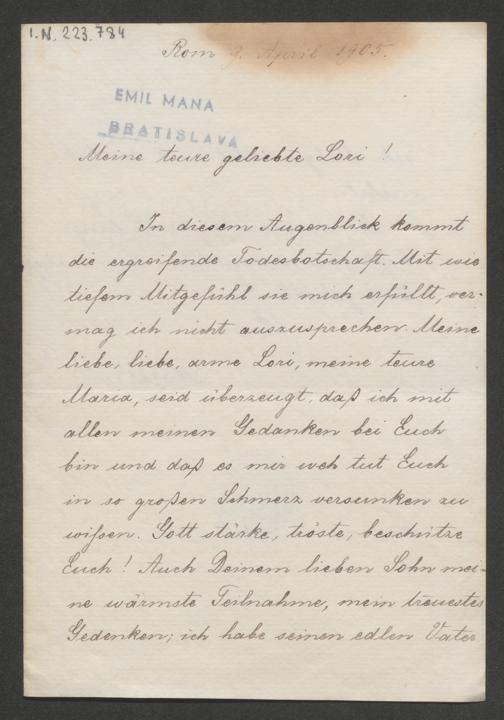 I.N. 223.784
Rom 9. April 1905.
EMIL MANA
BRATISLAVA
Meine teure geliebte Lori!
In diesem Augenblick kommt
die ergreifende Todesbotschaft. Mit wie
tiefem Mitgefühl sie mich erfüllt, ver-
mag ich nicht auszusprechen. Meine
liebe, liebe, arme Lori, meine teure
Maria, seid überzeugt, daß ich mit
allen meinen Gedanken bei Euch
bin und daß es mir weh tut Euch
in so großen Schmerz versunken zu
wißen. Gott stärke, tröste, beschütze
Euch! Auch Deinem lieben Sohn mei-
ne wärmste Teilnahme, mein treuestes
Gedenken; ich habe seinen edlen Vater